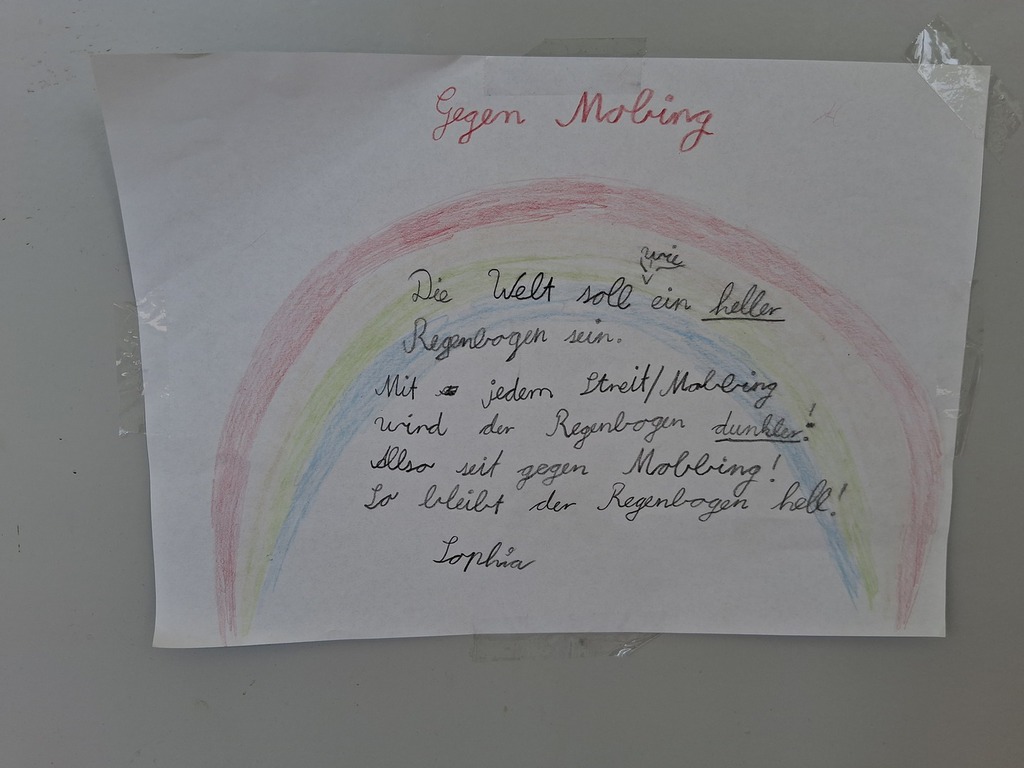 Gegen Mobing
Die Welt soll wie ein heller
Regenbogen sein.
Mit jedem Streit/Mobbing
wird der Regenbogen dunkler!
Also seit gegen Mobbing!
So bleibt der Regenbogen hell!
Sophia